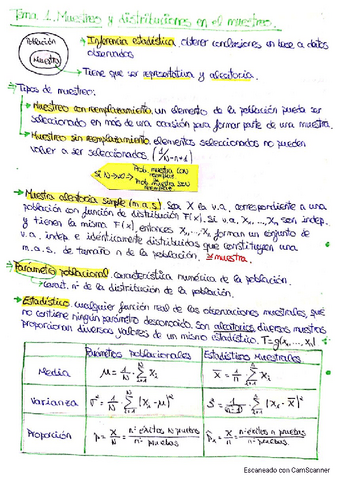 Tema 1. Muestreo y distribuciones en el muestreo.
Población
Muestra
Inferencia estadística, obtener conclusiones en base a datos
observados
Tiene que ser representativa y aleatoria.
Tipos de muestreo:
Muestreo con reemplazamiento, un elemento de la población puede ser
seleccionado en más de una ocasión para formar parte de una muestra.
Muestreo sin reemplazamiento, elementos seleccionados no pueden
volver a ser seleccionados (1/N-n+1)
Si N→∞ ⇒ Prob. muestra CON
reemplaz. ≈
Prob. muestra SIN
reemplaz.
Muestra aleatoria simple (m.a.s). Sea X la v.a. correspondiente a una
población con función de distribución F(x). Si v.a. X₁, ..., Xₙ son indep.
y tienen la misma F(x), entonces X₁, ..., Xₙ forman un conjunto de
v.a. indep. e idénticamente distribuidas que constituyen una
m.a.s. de tamaño n de la población. ≅ muestra.
Parámetro poblacional, característica numérica de la población.
caract. nº de la distribución de la población.
Estadístico, cualquier función real de las observaciones muestrales, que
no contiene ningún parámetro desconocido. Son aleatorios, diversas muestras
proporcionan diversos valores de un mismo estadístico. T=g(x₁, ..., xₙ)
Parámetros Poblacionales Estadísticos Muestrales
Media μ = 1/N · Σ xᵢ x̄ = 1/n · Σ xᵢ
Varianza σ² = 1/N · Σ (xᵢ - μ)² S² = 1/(n-1) · Σ (xᵢ - x̄)²
Proporción p = X/N = nº éxitos N pruebas / nº pruebas p̂ₓ = X/n = nº éxitos n pruebas / nº pruebas
Escaneado con CamScanner